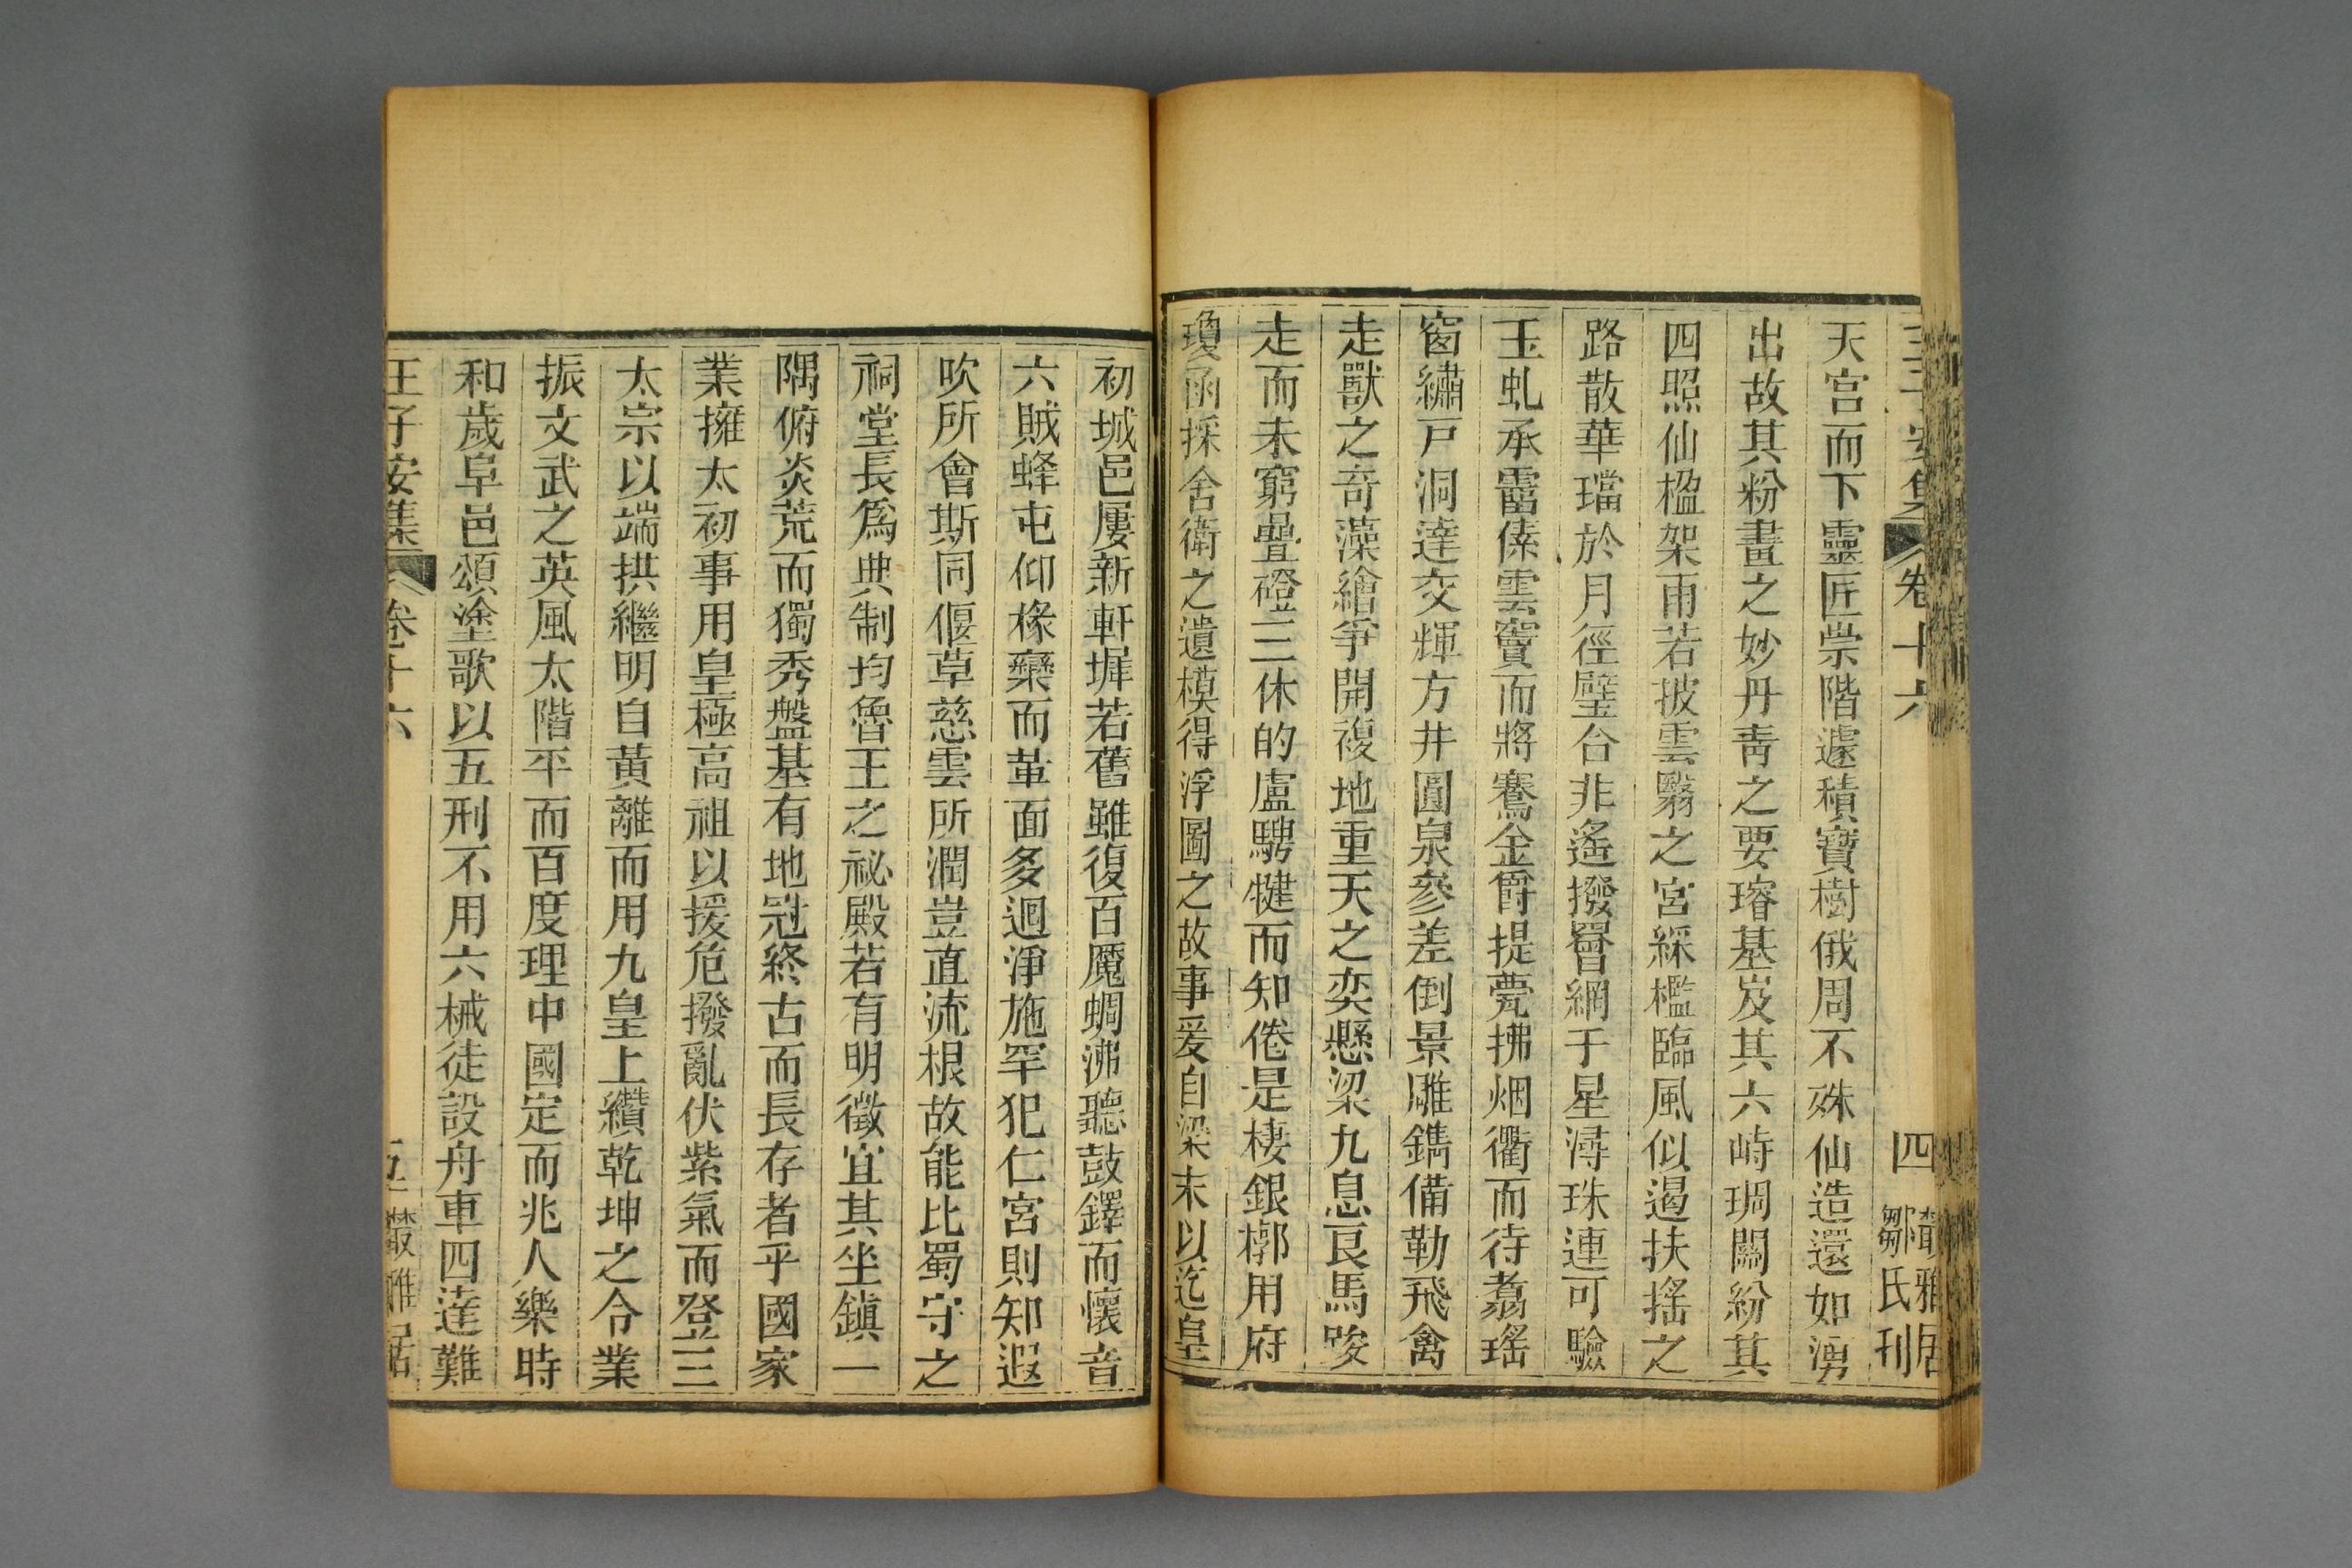 天宫而下靈匠崇階遽積寶樹俄周不殊仙造還如湧
出故其粉畫之妙丹靑之要璿基岌其六峙琱闕紛其
四照仙楹架雨若披雲翳之宮綵檻臨風似遏扶搖之
路散華璫於月徑璧台非遙撥罾網于星潯珠連可驗
玉虬承霤傃雲竇而將騫金爵提甍拂烟衢而待翥瑶
窗繡戸洞達交輝方井圓泉參差倒景雕鐫備勒飛禽
走獸之奇藻繪爭開複地重天之奕懸梁九息良馬踆
走而未窮疊磴三休的盧騁犍而知倦是棲銀槨用府
瓊函採舍衛之遺模得浮圖之故事爰自梁末以迄皇
初城邑屢新軒墀若舊雖復百魘蜩沸聽鼓鐸而懷音
六賊蜂屯仰椽欒而革面多迴淨施罕犯仁宮則知遐
吹所會斯同偃草慈雲所潤豈直流根故能比蜀守之
祠堂長爲典制均魯王之祕殿若有明徵宜其坐鎭一
隅俯炎荒而獨秀盤基有地冠終古而長存者乎國家
業擁太初事用皇極高祖以援危撥亂伏紫氣而登三
太宗以端拱繼明自黃離而用九皇上纘乾坤之令業
振文武之英風太階平而百度理中國定而兆人樂時
和歲阜邑頌塗歌以五刑不用六械徒設舟車四達難
王子安集 卷十六